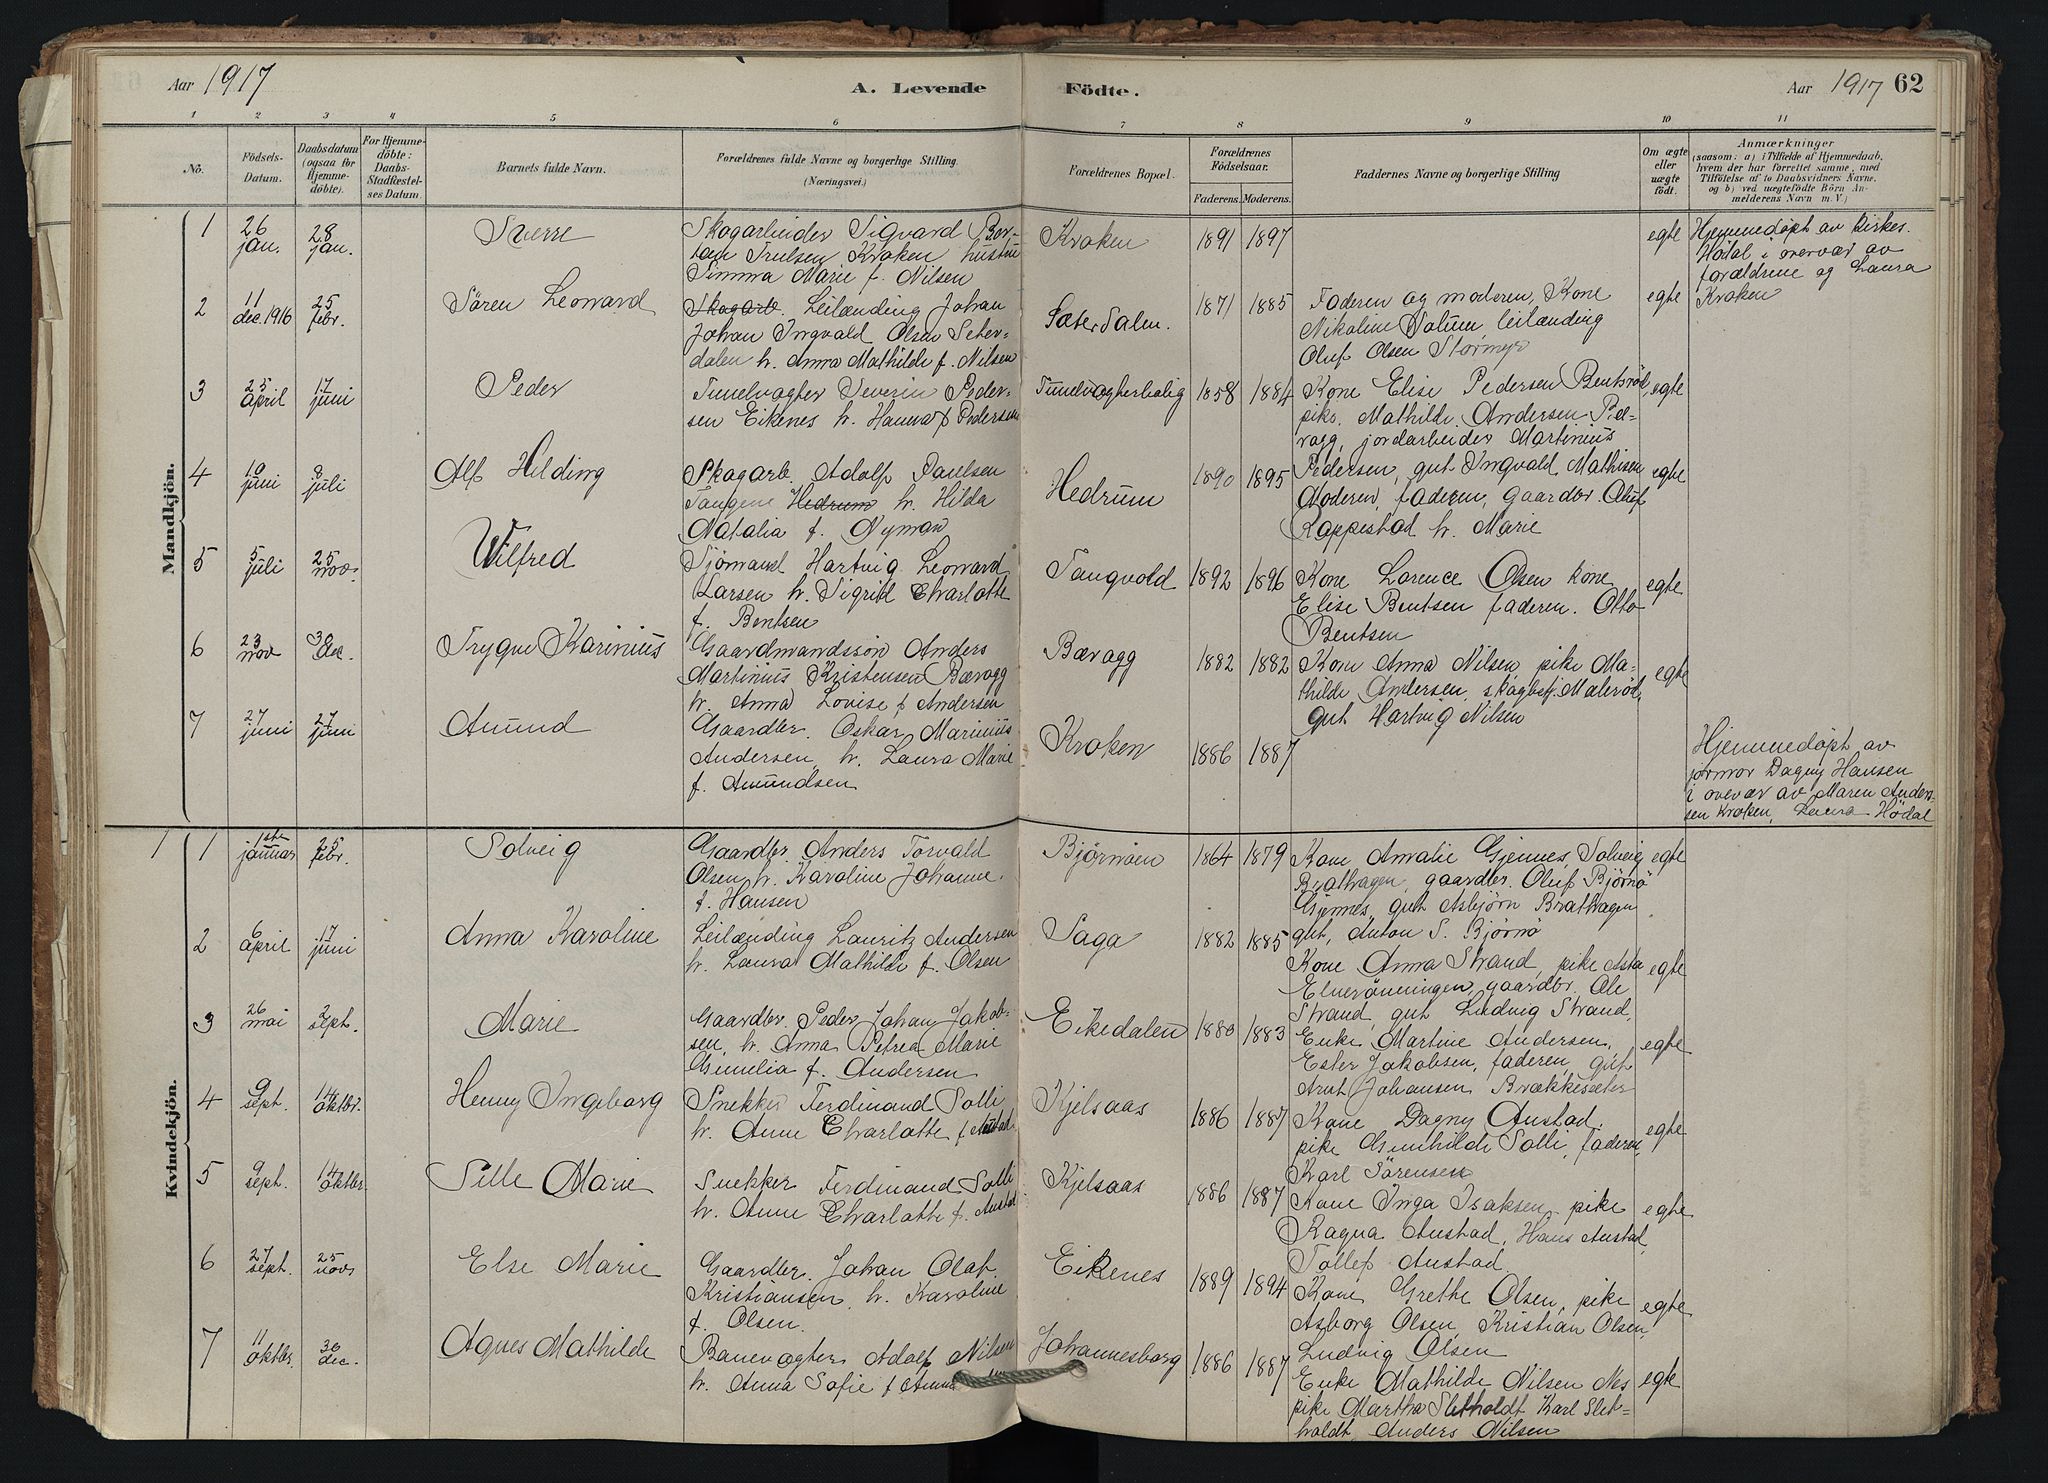 Aar 1917
A. Levende
Födte.
Aar 1917
62
1 2 3 4 5 6 7 8 9 10 11
No.
Födsels-Datum.
Daabsdatum (ogsaa for Hjemmedöbte).
For Hjemmedöbte: Daabs-Stadfæstelses Datum
Barnets fulde Navn.
Forældrenes fulde Navne og borgerlige Stilling.
(Næringsvei.)
Forældrenes Bopæl.
Forældrenes Födselsaar.
Faderens. Moderens.
Faddernes Navne og borgerlige Stilling
Om ægte eller uægte födt.
Anmærkninger
(saasom: a) i Tilfælde af Hjemmedaab, hvem der har forrettet samme, med Tilföielse af to Daabsvidners Navne, og b) ved uægtefödte Börn Anmelderens Navn m. V.)
Mandkjön.
1 26 jan. 28 jan. Sverre
Skogarbeider Sigvard
Trulsen Kroken hustru
Marie f. Nilsen
Kroken 1891 1897 egte
Hjemmedöpt av Kirkes.
Hödal i overvær av
forældrene og Laura
Kroken
2 11 dec. 1916 25 febr. Sören Leonard
Skogarb. Leilænding Johan
Johan Ingvald Olsen Seter-
dalen h. Anna Mathilde f. Nilsen
Sæterdalen. 1871 1885
Faderen og moderen, Kone
Nikoline Dolven leilænding
Oluf Olsen Stormyr
egte
3 25 april 17 juni Peder
Tunelvagter Severin Peder-
sen Eikenes h. Hanna f. Pedersen
Tunelvagterbolig 1858 1884
Kone Elise Pedersen Bentsröd,
pike Mathilde Andersen Bæ-
vagg, jordarbeider Martinius
Pedersen, gut Ingvald Mathisen
egte
4 10 juni 8 juli Alf Hilding
Skogarb. Adolf Paulsen
Tangene Hedrum h. Hilda
Natalia f. Nyman
Hedrum 1890 1895
Moderen, faderen, gaardbr. Oluf
Rappestad h. Marie
egte
5 5 juli 25 nov. Wilfred
Sjömand Hartvig Leonard
Larsen h. Sigrid Charlotte
f. Bentsen
Tangvold 1892 1896
Kone Lorence Olsen kone
Elise Bentsen faderen. Otto
Bentsen
egte
6 23 nov 30 dec. Trygve Karinius
Gaardmandssön Anders
Martinius Kristensen Bævagg
h. Anna Lovise f Andersen
Bævagg 1882 1882
Kone Anna Nilsen, pike Ma-
thilde Andersen,
gut Hartvig Nilsen
egte
7 27 juni 27 juni Amund
Gaardbr. Oskar Marinius
Andersen, h. Laura Marie
f. Amundsen
Kroken 1886 1887
Hjemmedöpt av
jormor Dagny Hansen
i overvær av Maren Ander-
sen Kroken, Laura Hödal
Kvindekjön.
1 1 1ste januar 25 febr. Solveig
Gaardbr. Anders Torvald
Olsen h. Karoline Johanne
f. Hansen
Björnöen 1864 1879
Kone Amalie Gjennes, Solveig
Brathagen, gaardbr. Oluf Björnö
Gjennes, gut Asbjörn Brathagen
gut, Anton S. Björnö
egte
2 6 april 17 juni Anna Karoline
Leilænding Lauritz Andersen
h. Laura Mathilde f. Olsen
Saga 1882 1885
Kone Anna Strand, pike Asta
gaardbr. Ole
Strand, gut Ludvig Strand,
egte
3 26 mai 2 sept. Marie
Gaardbr. Peder Johan Jakob-
sen, h. Anna Petrea Marie
f. Andersen
Eikedalen 1880 1883
Enke Martine Andersen,
Ester Jakobsen, faderen, gut
Arnt Johansen Brækkesæter
egte
4 9 sept. 14 oktbr. Henny Ingeborg
Snekker Ferdinand Solli
h. Anne Charlotte f Austad.
Kjelsaas 1886 1887
Kone Dagny Austad.
pike Gunhilde Solli, faderen,
Karl Sörensen
egte
5 9 sept. 14 oktbr Sille Marie
Snekker Ferdinand Solli
h. Anne Charlotte f. Austad
Kjelsaas 1886 1887
Kone Inga Isaksen, pike
Ragna Austad, Hans Austad,
Tollef Austad.
egte
6 27 sept. 25 nov. Else Marie
Gaardbr. Johan Olaf
Kristiansen, h. Karoline
f. Olsen.
Eikenes 1889 1894
Kone Grethe Olsen, pike
Asborg Olsen, Kristian Olsen,
Ludvig Olsen
egte
7 11 oktbr. 30 dec. Agnes Mathilde
Banevogter Adolf Nilsen
h. Anna Sofie f
Johannesborg 1886 1887
Enke Mathilde Nilsen Nes
pike Martha Sletholdt Karl Slet-
holdt, Anders Nilsen
egte